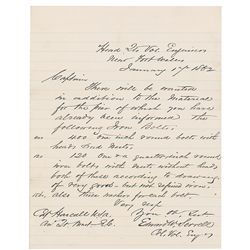 Head Qrs Vol Engineers
Near Fort Wiles
January 17th 1862
Captain
There will be wanted
in addition to the material
for the pier of which you have
already been informed the
following Iron Bolts;
400 One inch round bolts with
heads & nuts
120 One & a quarter inch round
iron bolts with nuts without heads
both of these according to drawing
of very good, but not refined iron.
also three washers for each bolt.
Very resp
Your Ob Servt
Edward W. Serrell
Col. Vol. Eng